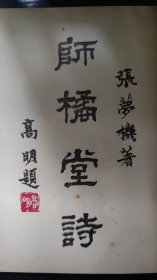 張夢機著
師橘堂詩
高明題